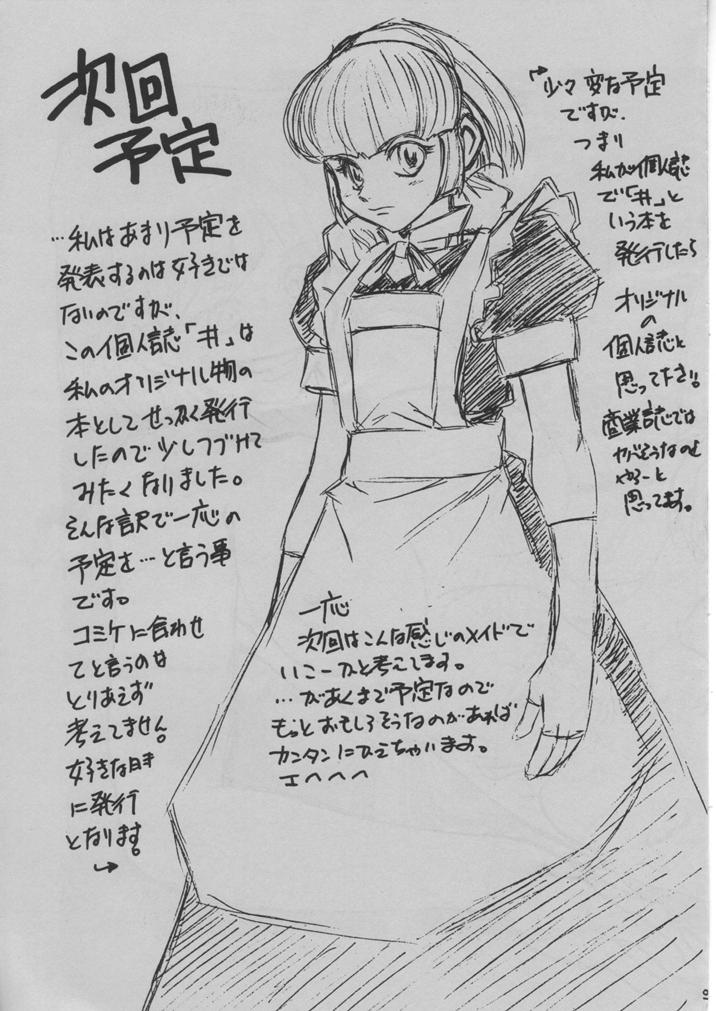 次回
予定
…私はあまり予定を
発表するのは好きでは
ないのですが、
この個人誌「井」は
私のオリジナル物の
本としてせっかく発行
したので少しつづけて
みたくなりました。
そんな訳で一応の
予定を…と言う事
です。
コミケに合わせ
てと言うのは
とりあえず
考えてません。
好きな時
に発行
となります。
→
少々変な予定
ですが、
つまり
私が個人誌
で「井」と
いう本を
発行したら
オリジナル
の
個人誌と
思って下さい。
商業誌では
ヤバそうなのを
やろーと
思ってます。
一応
次回はこんな感じのメイドで
いこーかと考えてます。
…があくまで予定なので
もっとおもしろそうなのがあれば
カンタンにひえちゃいます。
エヘヘヘ